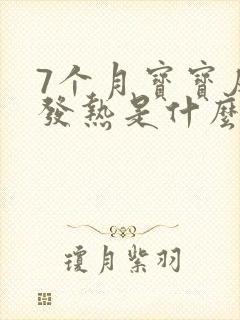 7个月寶寶
發熱是什麼
瓊月紫羽